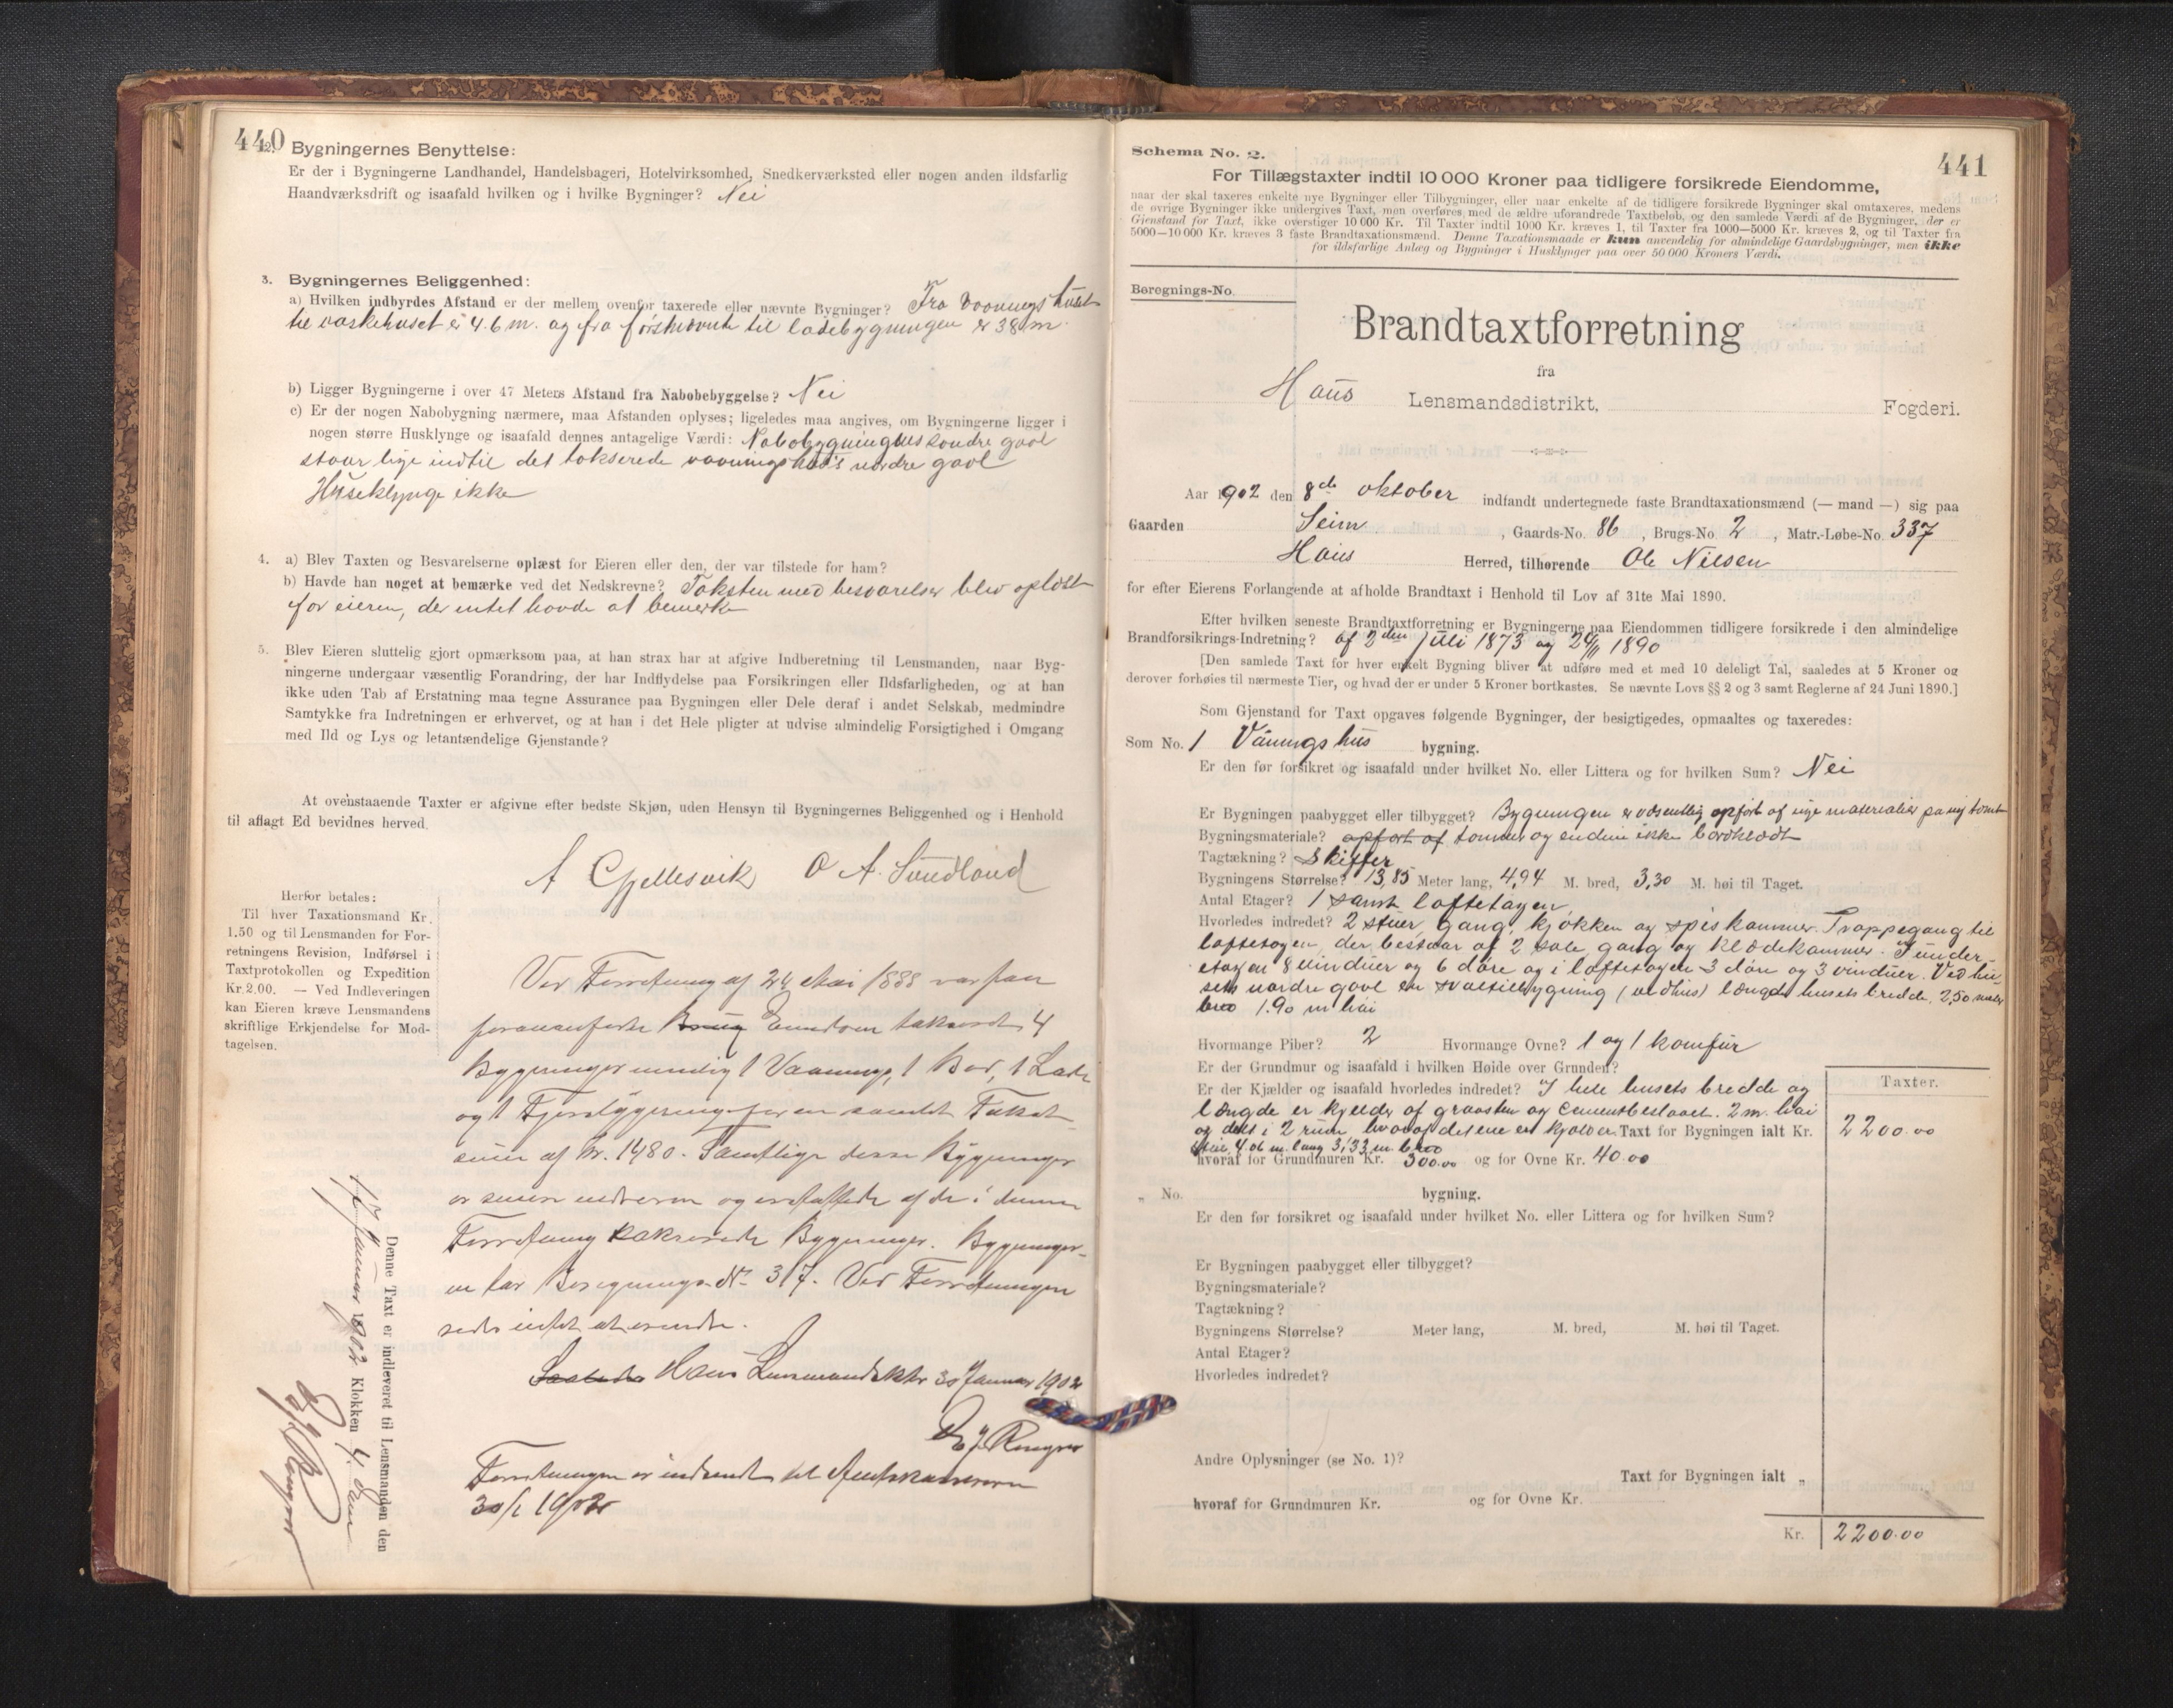 440
2. Bygningernes Benyttelse:
Er der i Bygningerne Landhandel, Handelsbageri, Hotelvirksomhed, Snedkerværksted eller nogen anden ildsfarlig
Haandværksdrift og isaafald hvilken og i hvilke Bygninger? Nei
3. Bygningernes Beliggenhed:
a) Hvilken indbyrdes Afstand er der mellem ovenfor taxerede eller nævnte Bygninger? Fra vaaningshuset
til vaskehuset er 4.6 m. og fra førstnævnte til ladebygningen er 38 m.
b) Ligger Bygningerne i over 47 Meters Afstand fra Nabobebyggelse? Nei
c) Er der nogen Nabobygning nærmere, maa Afstanden oplyses; ligeledes maa angives, om Bygningerne ligger i
nogen større Husklynge og isaafald dennes antagelige Værdi: Nabobygningens søndre gavl
staar lige indtil det takserede vaaningshus's nordre gavl
Huseklynge ikke
4. a) Blev Taxten og Besvarelserne oplæst for Eieren eller den, der var tilstede for ham?
b) Havde han noget at bemærke ved det Nedskrevne? Taksten med besvarelser blev oplæst
for eieren, der intet havde at bemærke
5. Blev Eieren sluttelig gjort opmærksom paa, at han strax har at afgive Indberetning til Lensmanden, naar Byg-
ningerne undergaar væsentlig Forandring, der har Indflydelse paa Forsikringen eller Ildsfarligheden, og at han
ikke uden Tab af Erstatning maa tegne Assurance paa Bygningen eller Dele deraf i andet Selskab, medmindre
Samtykke fra Indretningen er erhvervet, og at han i det Hele pligter at udvise almindelig Forsigtighed i Omgang
med Ild og Lys og letantændelige Gjenstande?
At ovenstaaende Taxter er afgivne efter bedste Skjøn, uden Hensyn til Bygningernes Beliggenhed og i Henhold
til aflagt Ed bevidnes herved.
A Gjellesvik O A. Sundland
Herfor betales:
Til hver Taxationsmand Kr.
1.50 og til Lensmanden for For-
retningens Revision, Indførsel i
Taxtprotokollen og Expedition
Kr. 2.00. — Ved Indleveringen
kan Eieren kræve Lensmandens
skriftlige Erkjendelse for Mod-
tagelsen.
Ved Forretning af 24 Mai 1888 var paa
forananførte Brug Eiendom takseret 4
Bygninger nemlig 1 Vaanings, 1 Bod, 1 Lade
og 1 Fjøsbygning for en samlet Takst-
sum af Kr. 1480. Samtlige disse Bygninger
er senere nedrevne og erstattede af de i denne
Forretning takserede Bygninger. Bygninger-
ne har Beregnings No 317. Ved Forretningen
sees intet at erindre.
Haus Lensmandsktr 30 Januar 1902
Forretningen er indsendt til Amtskassereren
30/1 1902
Denne Taxt er indleveret til Lensmanden den
Januar 1902 Klokken 4.
441
Schema No. 2.
For Tillægstaxter indtil 10 000 Kroner paa tidligere forsikrede Eiendomme,
naar der skal taxeres enkelte nye Bygninger eller Tilbygninger, eller naar enkelte af de tidligere forsikrede Bygninger skal omtaxeres, medens
de øvrige Bygninger ikke undergives Taxt, men overføres med de ældre uforandrede Taxtbeløb, og den samlede Værdi af de Bygninger, der er
Gjenstand for Taxt, ikke overstiger 10 000 Kr. Til Taxter indtil 1000 Kr. kræves 1, til Taxter fra 1000—5000 Kr. kræves 2, og til Taxter fra
5000—10 000 Kr. kræves 3 faste Brandtaxationsmænd. Denne Taxationsmaade er kun anvendelig for almindelige Gaardsbygninger, men ikke
for ildsfarlige Anlæg og Bygninger i Husklynger paa over 50 000 Kroners Værdi.
Beregnings-No.
Brandtaxtforretning
fra
Haus Lensmandsdistrikt, Fogderi.
Aar 1902 den 8de oktober indfandt undertegnede faste Brandtaxationsmænd (— mand —) sig paa
Gaarden Seim, Gaards-No. 86, Brugs-No. 2, Matr.-Løbe-No. 337
Haus Herred, tilhørende Ole Nilsen
for efter Eierens Forlangende at afholde Brandtaxt i Henhold til Lov af 31te Mai 1890.
Efter hvilken seneste Brandtaxtforretning er Bygningerne paa Eiendommen tidligere forsikrede i den almindelige
Brandforsikrings-Indretning? af 2den Juli 1873 og 24/11 1890
[Den samlede Taxt for hver enkelt Bygning bliver at udføre med et med 10 deleligt Tal, saaledes at 5 Kroner og
derover forhøies til nærmeste Tier, og hvad der er under 5 Kroner bortkastes. Se nævnte Lovs §§ 2 og 3 samt Reglerne af 24 Juni 1890.]
Som Gjenstand for Taxt opgaves følgende Bygninger, der besigtigedes, opmaaltes og taxeredes:
Som No. 1 Vånings hus bygning.
Er den før forsikret og isaafald under hvilket No. eller Littera og for hvilken Sum? Nei
Er Bygningen paabygget eller tilbygget? Bygningen er væsentlig opført af nye materialier paa ny tomt
Bygningsmateriale? opført af tømmer og endnu ikke bordklædt
Tagtækning? Skiffer
Bygningens Størrelse? 13,85 Meter lang, 4,94 M. bred, 3,30 M. høi til Taget.
Antal Etager? 1 samt loftetagen
Hvorledes indredet? 2 stuer, gang, kjøkken og spiskammer. Trappegang til
loftetagen, der bestaar af 2 sale, gang og klædekammer. I under-
etagen 8 vinduer og 6 døre og i loftetagen 3 døre og 3 vinduer. Ved hu-
sets nordre gavl en svaltilbygning (vedhus) længde husets bredde, 2,50 meter
bred 1.90 m høi
Hvormange Piber? 2 Hvormange Ovne? 1 og 1 komfur
Er der Grundmur og isaafald i hvilken Høide over Grunden?
Er der Kjælder og isaafald hvorledes indredet? I hele husets bredde og
længde er kjelder af graasten og cementbeslaaet. 2 m. høi
og delt i 2 rum hvoraf det ene er kjælder Taxt for Bygningen ialt Kr.
stue 4,06 m. lang 3,33 m. bred
hvoraf for Grundmuren Kr. 300.00 og for Ovne Kr. 40.00
Taxter.
2200.00
„ No. bygning.
Er den før forsikret og isaafald under hvilket No. eller Littera og for hvilken Sum?
Er Bygningen paabygget eller tilbygget?
Bygningsmateriale?
Tagtækning?
Bygningens Størrelse? Meter lang, M. bred, M. høi til Taget.
Antal Etager?
Hvorledes indredet?
Andre Oplysninger (se No. 1)?
Taxt for Bygningen ialt „
hvoraf for Grundmuren Kr. og for Ovne Kr.
Kr. 2200.00